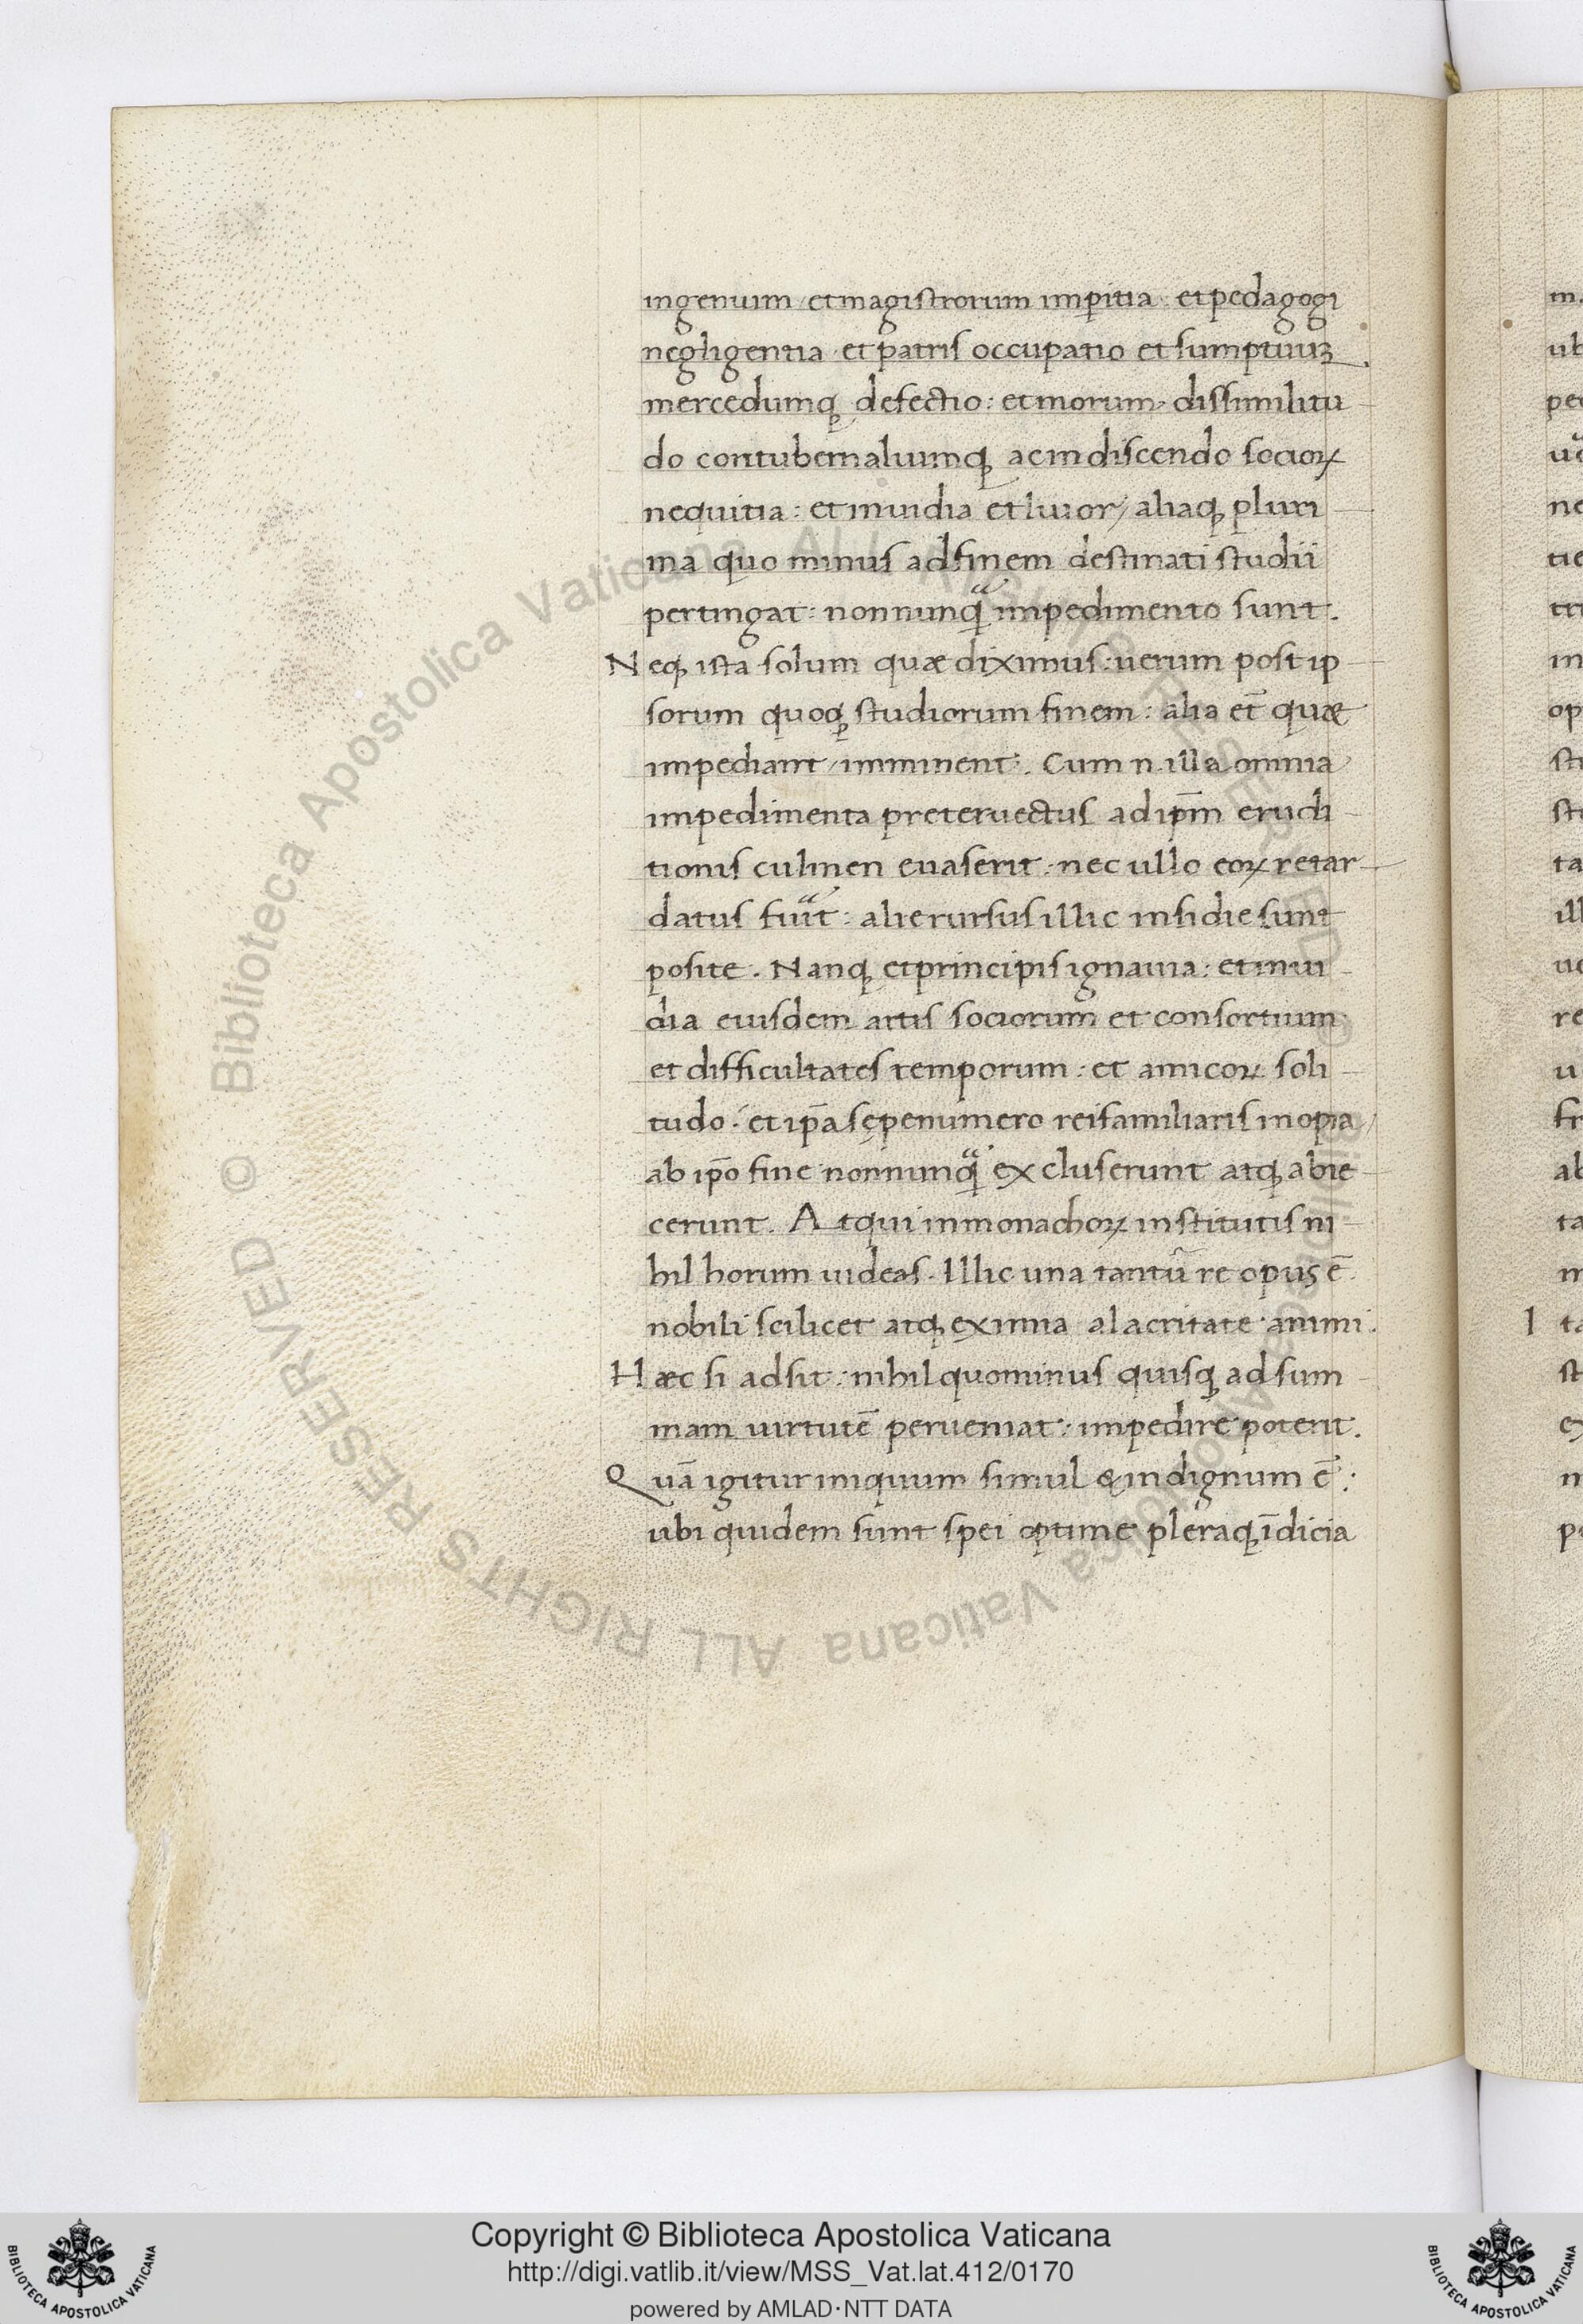 ingenium / et magistrorum imperitia : et pedagogi
negligentia · et patris occupatio et sumptuuꝫ
mercedumqꝫ defectio : et morum dissimilitu
do contubernaliumqꝫ ac in discendo socioꝝ
nequitia : et inuidia et liuor / aliaqꝫ pluri
ma quo minus ad finem destinati studii
pertingat : nonnunꝙᷓ impedimento sunt.
Neqꝫ ista solum quæ diximus : uerum post ip
sorum quoqꝫ studiorum finem : alia et̄ quæ
impediant / imminent. Cum n. illa omnia
impedimenta preteruectus ad ip̄m erudi
tionis culmen euaserit · nec ullo eoꝝ retar
datus fiuᷓt : alie rursus illic insidie sunt
posite. Nanqꝫ et principis ignauia : et inui
dia eiusdem artis sociorum et consortium
et difficultates temporum : et amicoꝝ soli
tudo : et ip̄a sępenumero rei familiaris inopia /
ab ip̄o fine nonnunꝙᷓ excluserunt atqꝫ abie
cerunt. Atqui in monachoꝝ institutis ni
hil horum uideas. Illic una tantū re opus ē
nobili scilicet atqꝫ eximia alacritate animi.
Hæc si adsit : nihil quominus quisqꝫ ad sum
mam uirtutē perueniat : impedire poterit.
Quā igitur iniquum simul & indignum ē :
ubi quidem sunt spei optime pleraqꝫ īdicia
m.
ub
pe
ne
tie
in
op
ta
ill
re
u
fr
ab
ta
l ta
st
ex
p
Biblioteca Apostolica Vaticana ALL RIGHTS RESERVED ©
Biblioteca Apostolica Vaticana ALL RIGHTS RESERVED ©
Copyright © Biblioteca Apostolica Vaticana
http://digi.vatlib.it/view/MSS_Vat.lat.412/0170
powered by AMLAD·NTT DATA
BIBLIOTECA APOSTOLICA VATICANA
BIBLIOTECA APOSTOLICA VATICANA